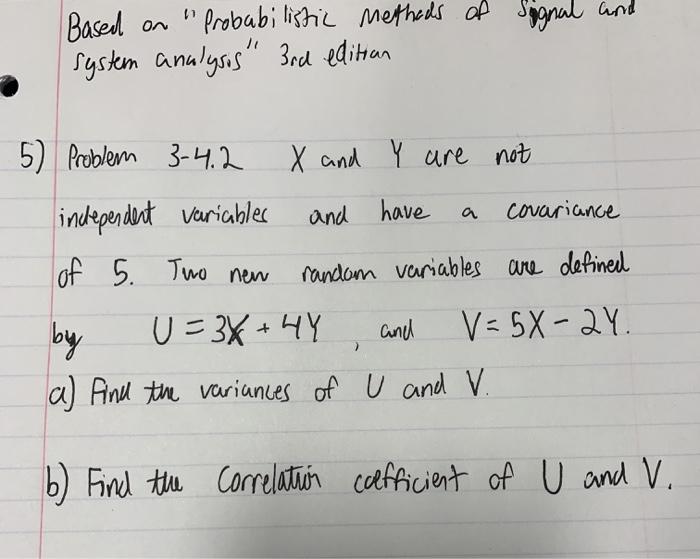 Based on "Probabilistic methods of Signal and
System analysis" 3rd edition
5) Problem 3-4.2 X and Y are not
independent variables and have a covariance
of 5. Two new random variables are defined
by U = 3X + 4Y, and V = 5X - 2Y.
a) Find the variances of U and V.
b) Find the Correlation coefficient of U and V.